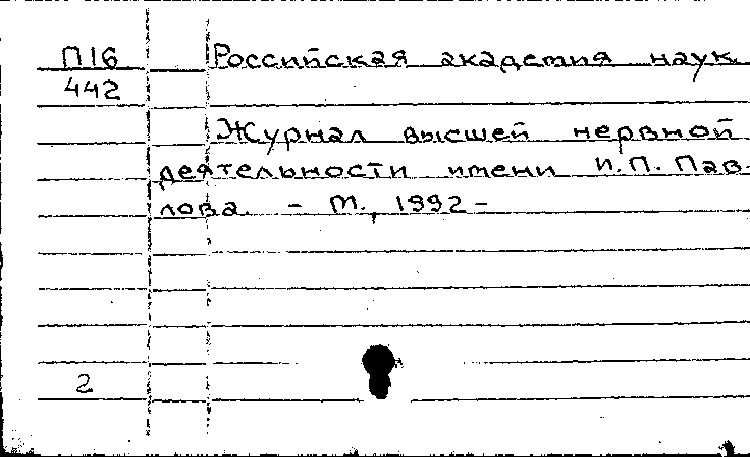 П16 Российская академия наук.
442
Журнал высшей нервной
деятельности имени И.П. Пав-
лова. - М., 1992 -
2